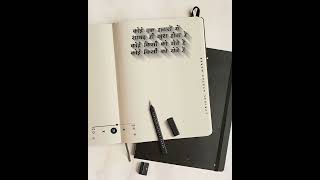 कोई एक हजारों में
शायद ही खुश होता है
कोई किसी को रोते है
कोई किसी को रोते है